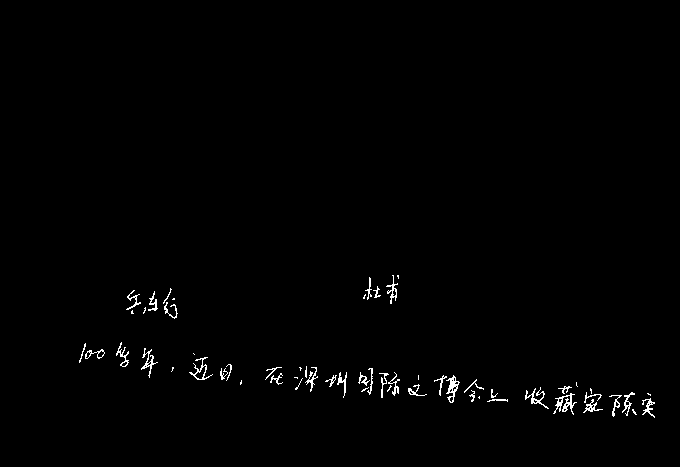 兵车行 杜甫
100多年,近日,在深圳国际文博会上 收藏家陈奕